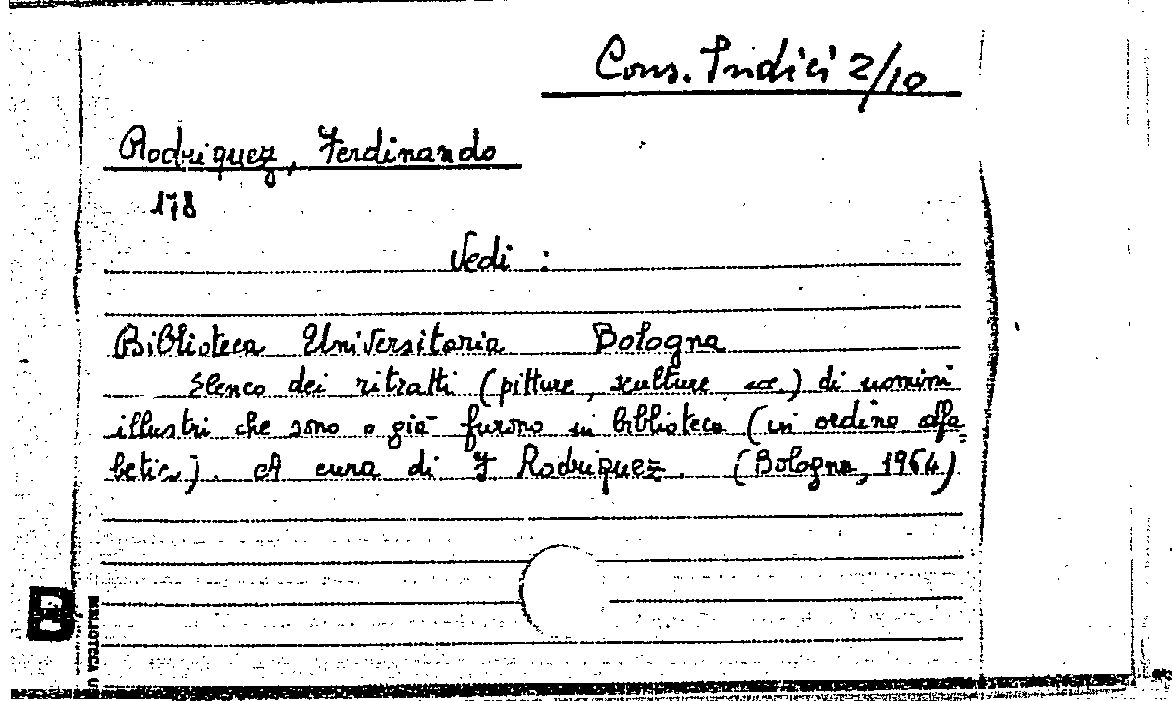 Cons. Indici 2/10
Rodriquez, Ferdinando
178
Vedi :
Biblioteca Universitaria Bologna
Elenco dei ritratti (pitture, sculture ecc.) di uomini
illustri che sono o già furono in biblioteca (in ordine alfa
betico). A cura di F Rodriquez. (Bologna, 1964)
BIBLIOTECA U